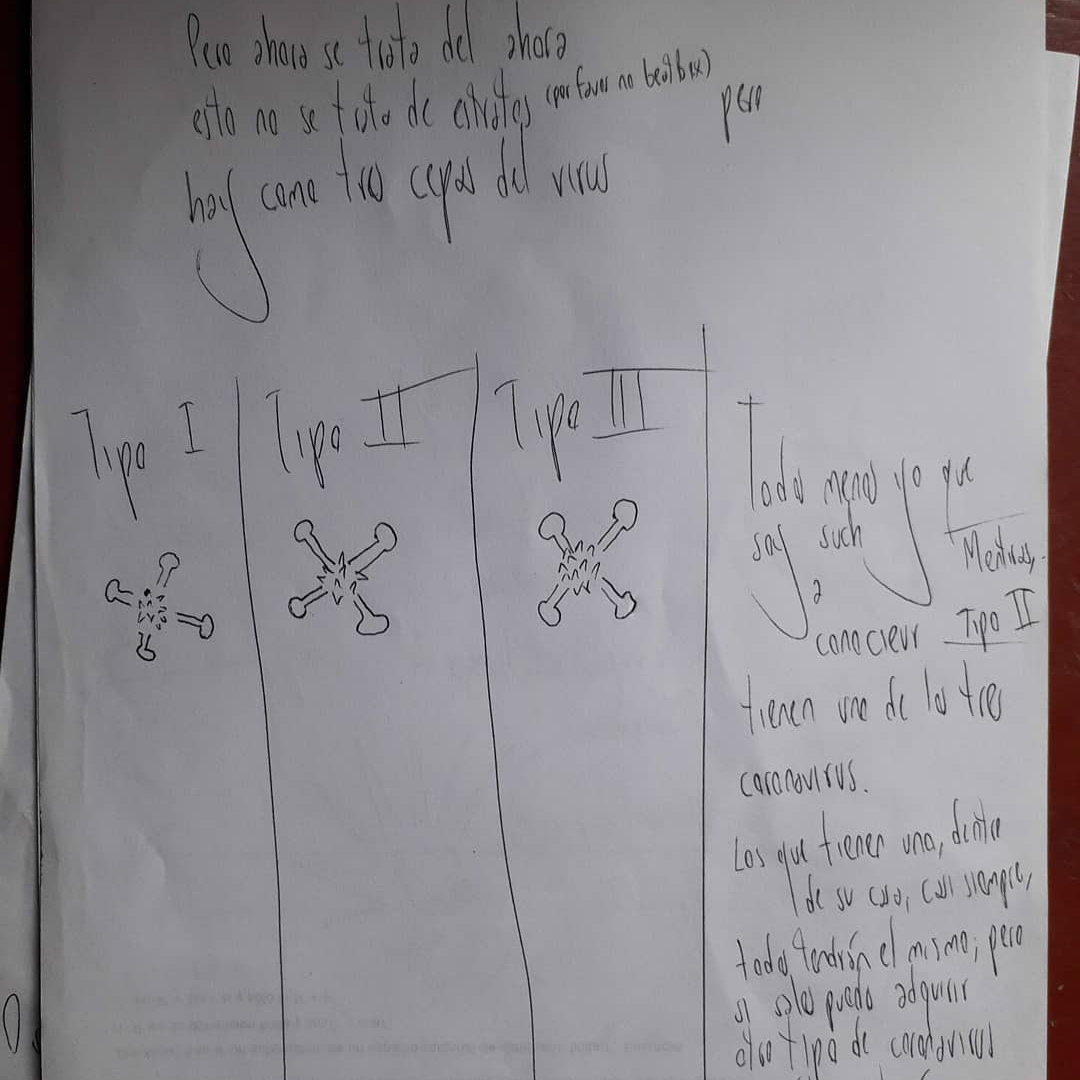 Pero ahora se trata del ahora
esto no se trata de estratos (por favor no beatbox) pero
hay como tres cepas del virus
Tipo I
Tipo II
Tipo III
Todos menos yo que
soy such
a
Mentiras,
conocieur Tipo II
tienen uno de los tres
coronavirus.
Los que tienen uno, dentro
de su casa, casi siempre,
todos tendrán el mismo; pero
si sales puedo adquirir
otro tipo de coronavirus